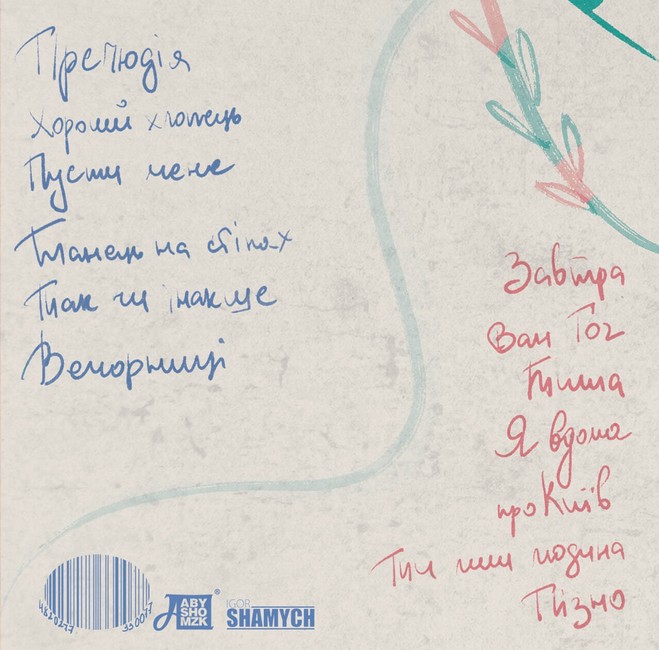 Прелюдія
Хороший хлопець
Пусти мене
Танець на стінах
Так чи інакше
Вечорниці
Завтра
Ван Гог
Тиша
Я вдома
про Київ
Пізно
ABY
SHO
MZK
IGOR
SHAMYCH